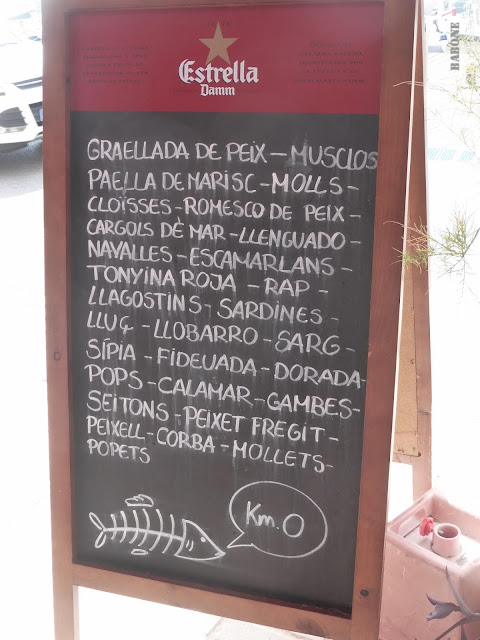 Estrella
Damm
BABONE
GRAELLADA DE PEIX - MUSCLOS
PAELLA DE MARISC - MOLLS -
CLOÏSSES - ROMESCO DE PEIX -
CARGOLS DE MAR - LLENGUADO -
NAVALLES - ESCAMARLANS -
TONYINA ROJA - RAP -
LLAGOSTINS - SARDINES -
LLUÇ - LLOBARRO - SARG -
SÍPIA - FIDEUADA - DORADA -
POPS - CALAMAR - GAMBES -
SEITONS - PEIXET FREGIT -
PEIXELL - CORBA - MOLLETS -
POPETS
Km. O